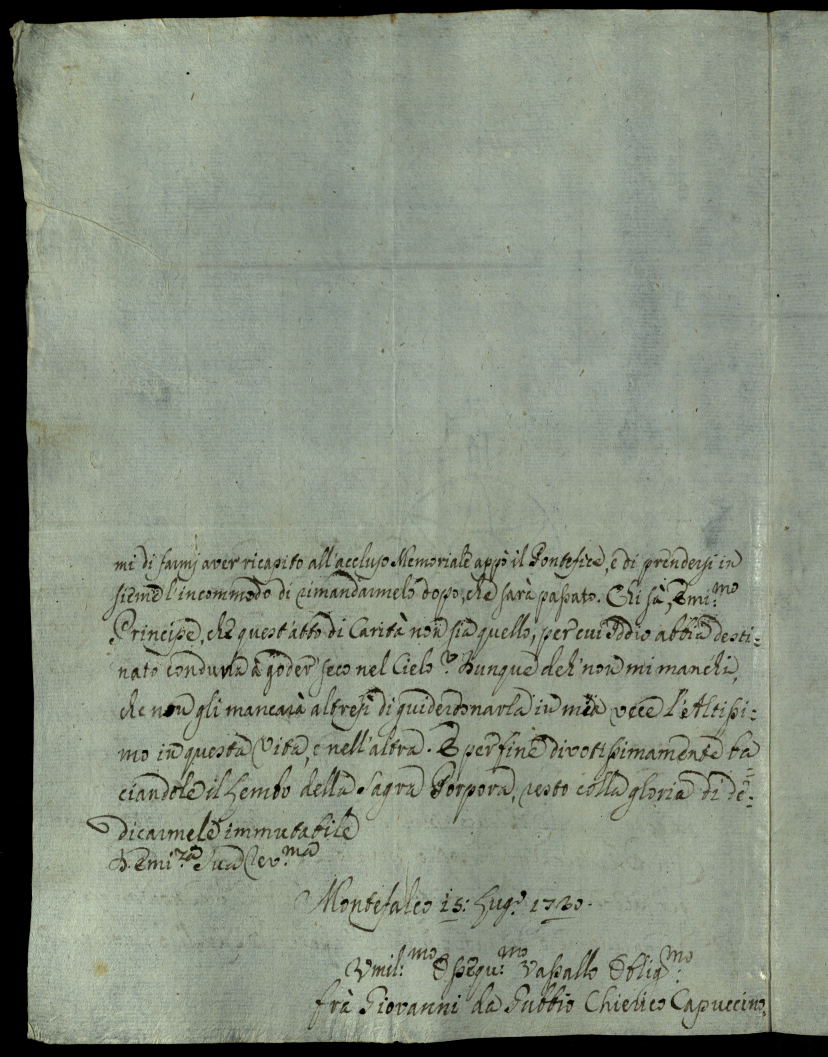 mi di farmi aver ricapito all'accluso Memoriale appò il Pontefice, e di prendersi in
sieme l'incommodo di rimandarmelo dopo, che sarà passato. Chi sà, Emi:mo
Principe, che quest'atto di Carità non sia quello, per cui Iddio abbia desti:
nato condurla à goder seco nel Cielo? Dunque deh' non mi manchi,
che non gli mancarà altresì di guiderdonarla in mia vece l'Altissi:
mo in questa Vita, e nell'altra. E per fine divotissimamente ba
ciandole il Lembo della Sagra Porpora, resto colla gloria di de:
dicarmele immutabile
D. Emi.za Sua Rev.ma
Montefalco 15: Lug.o 1720.
Umil:mo Ossequ:mo Vassallo Oblig:mo
frà Giovanni da Gubbio Chierico Capuccino